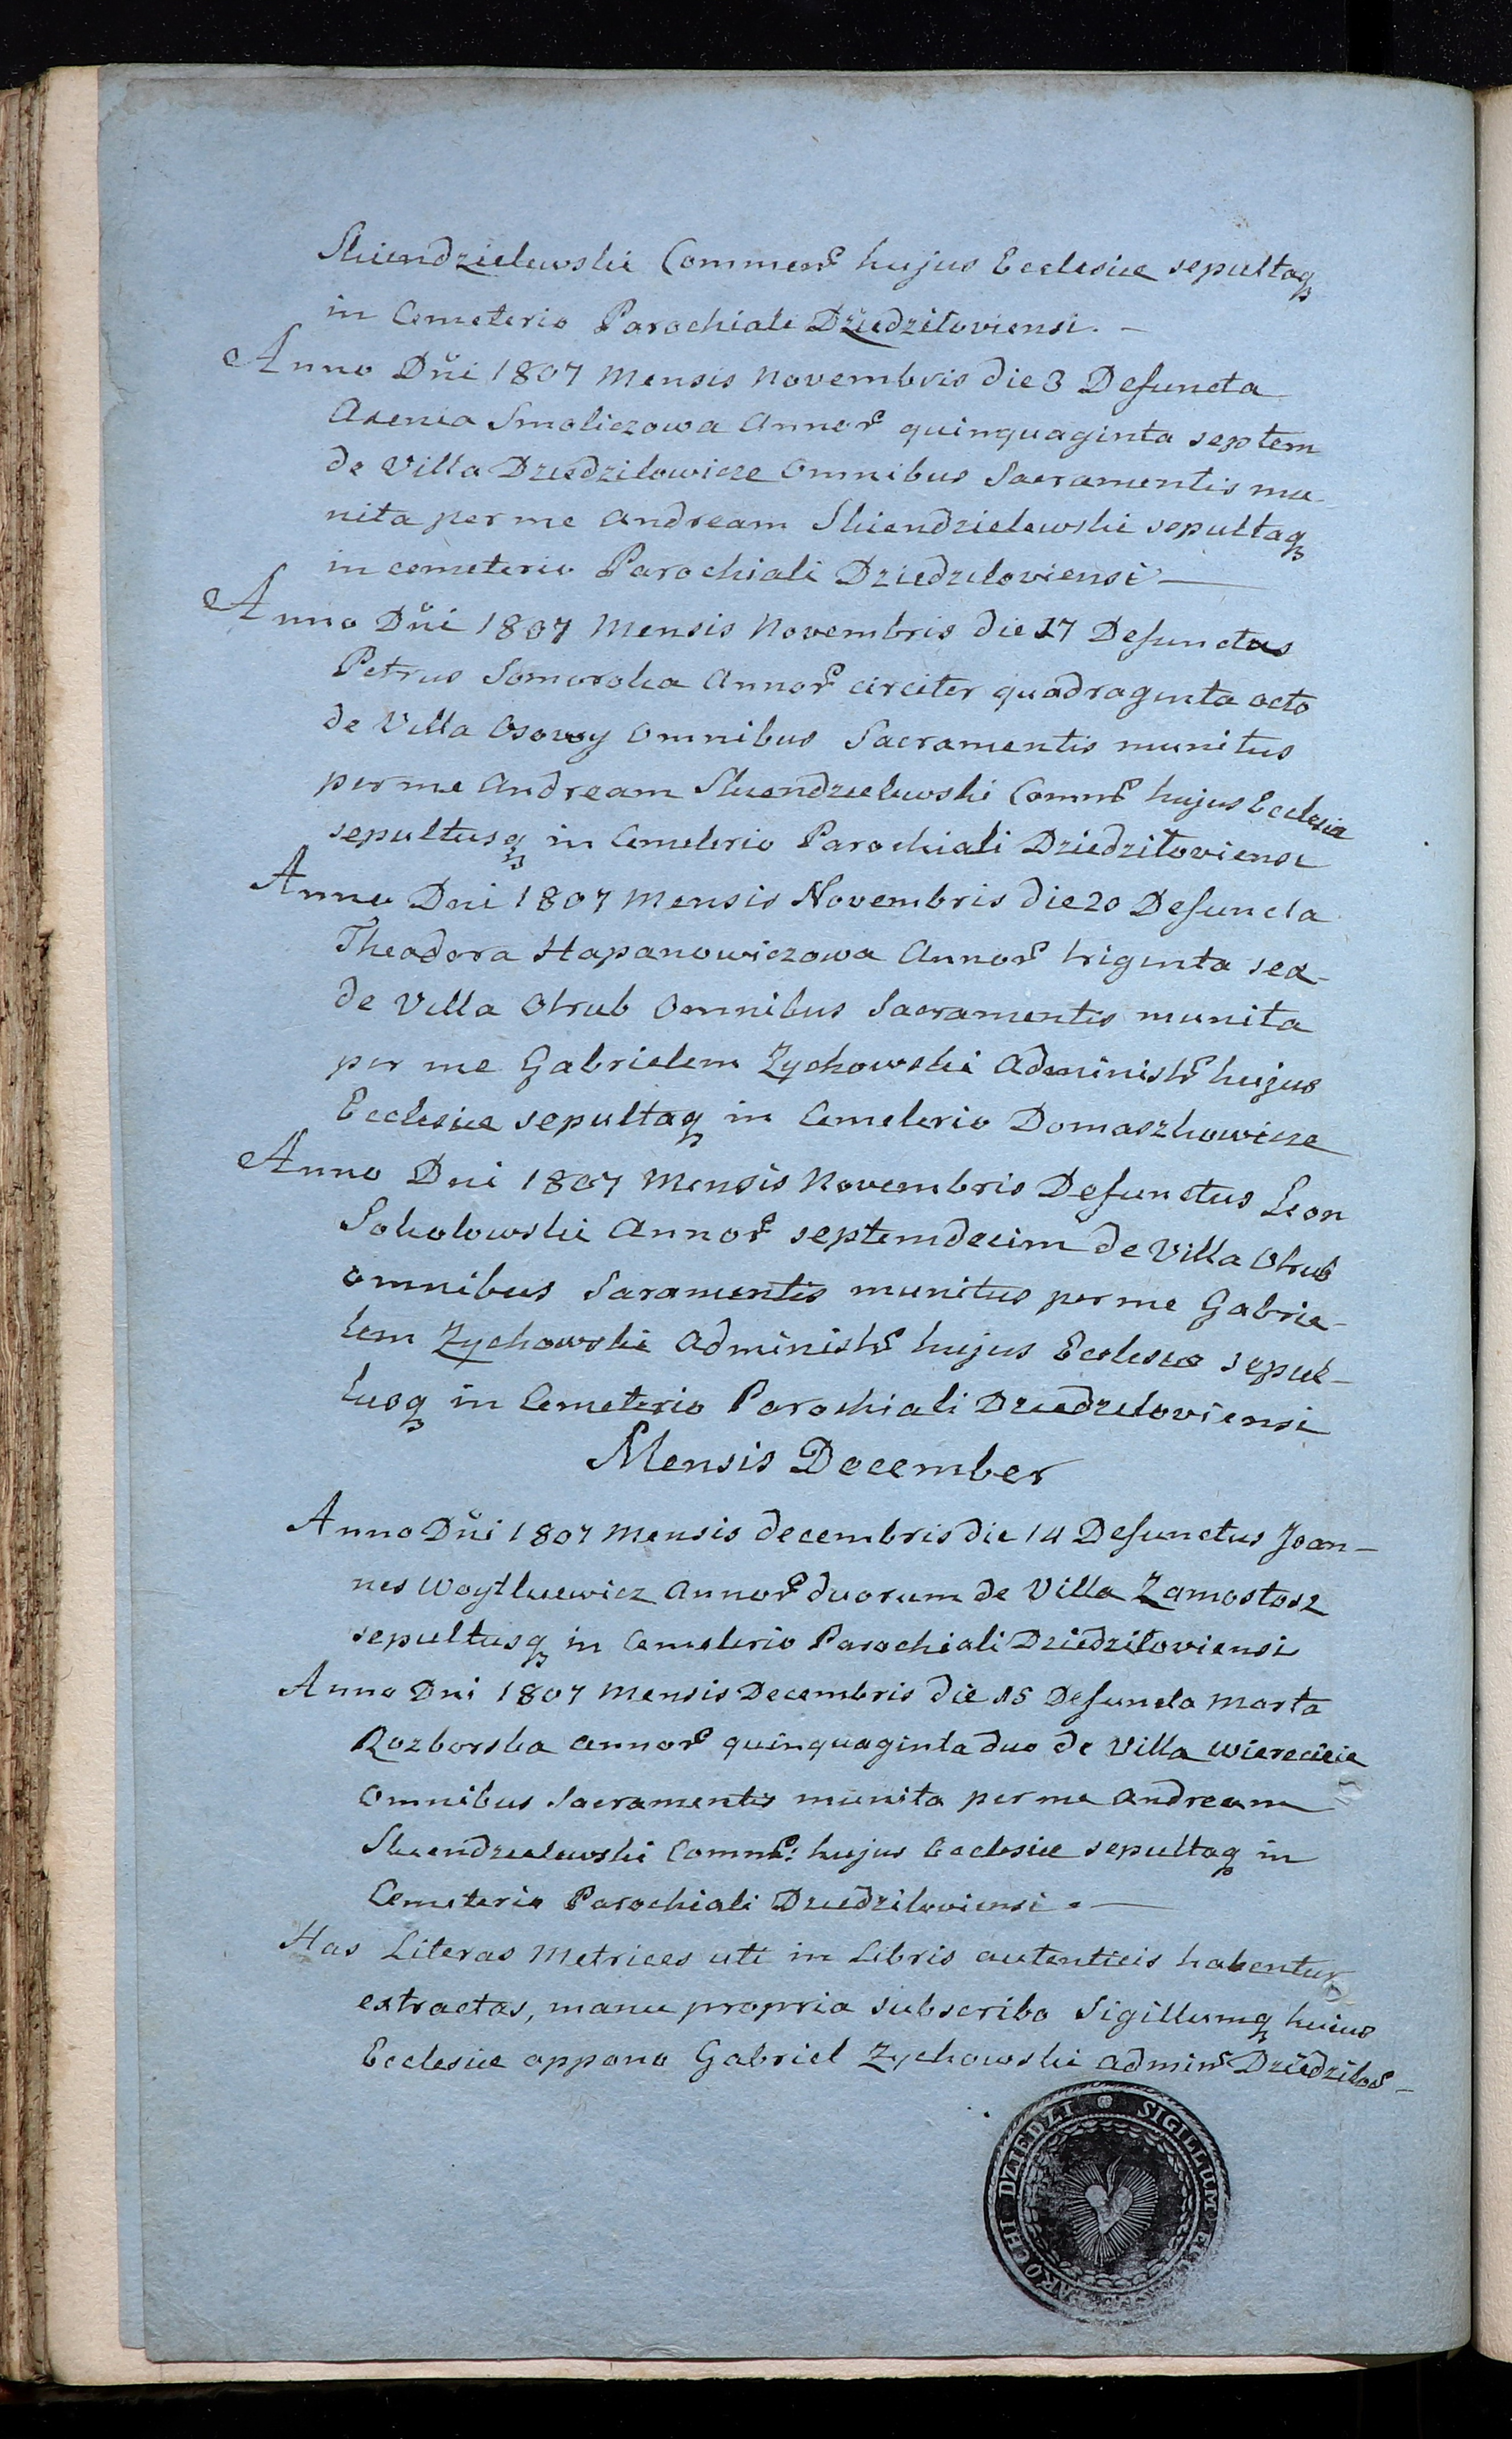 Skiendzielewski Commenr̃ hujus Ecclesiæ sepultaq
in Cemeterio Parochiali Dziedziłoviensi. –
Anno Dñi 1807 Mensis Novembris die 3 Defuncta
Axenia Smoliczowa Annor̃ quinquaginta septem
de Villa Dziedzilowicze Omnibus Sacramentis mu
nita per me Andream Skiendzielewski sepultaq
in cemeterio Parochiali Dziedziloviensi —
Anno Dñi 1807 Mensis Novembris die 17 Defunctus
Petrus Somoroka Annor̃ circiter quadraginta octo
de Villa Osowy Omnibus Sacramentis munitus
per me Andream Skiendzielewski Commr̃ hujus Ecclesiæ
sepultusq in Cemeterio Parochiali Dziedziłoviensi
Anno Dni 1807 Mensis Novembris die 20 Defuncta
Theodora Hapanowiczowa Annor̃ triginta sex
de Villa Otrub Omnibus Sacramentis munita
per me Gabrielem Zychowski Administr̃ hujus
Ecclesiæ sepultaq in Cemeterio Domaszkowicze
Anno Dni 1807 Mensis Novembris Defunctus Leon
Sokolowski Annor̃ septemdecim de Villa Otrub
omnibus Saramentis munitus per me Gabrie-
lem Zychowski Administr̃ hujus Ecclesiæ sepul-
tusq in Cemeterio Parochiali Dziedziloviensi
Mensis December
Anno Dñi 1807 Mensis decembris die 14 Defunctus Joan-
nes Woytkiewicz Annor̃ duorum de Villa Zamostosz
sepultusq in Cemeterio Parochiali Dziedziłoviensi
Anno Dni 1807 Mensis Decembris die 15 Defuncta Marta
Rozborska Annor̃ quinquaginta duo de Villa Wierecieie
Omnibus Sacramentis munita per me Andream
Skiendzielewski Commr̃: hujus Ecclesiæ sepultaq in
Cemeterio Parochiali Dziedziloviensi. —
Has Literas Metrices uti in Libris autenticis habentur
extractas, manu propria subscribo Sigillumq huius
Ecclesiæ appono Gabriel Zychowski Adminr̃ Dziedzilor̃ –
SIGILLUM PAROCHI DZIEDZI